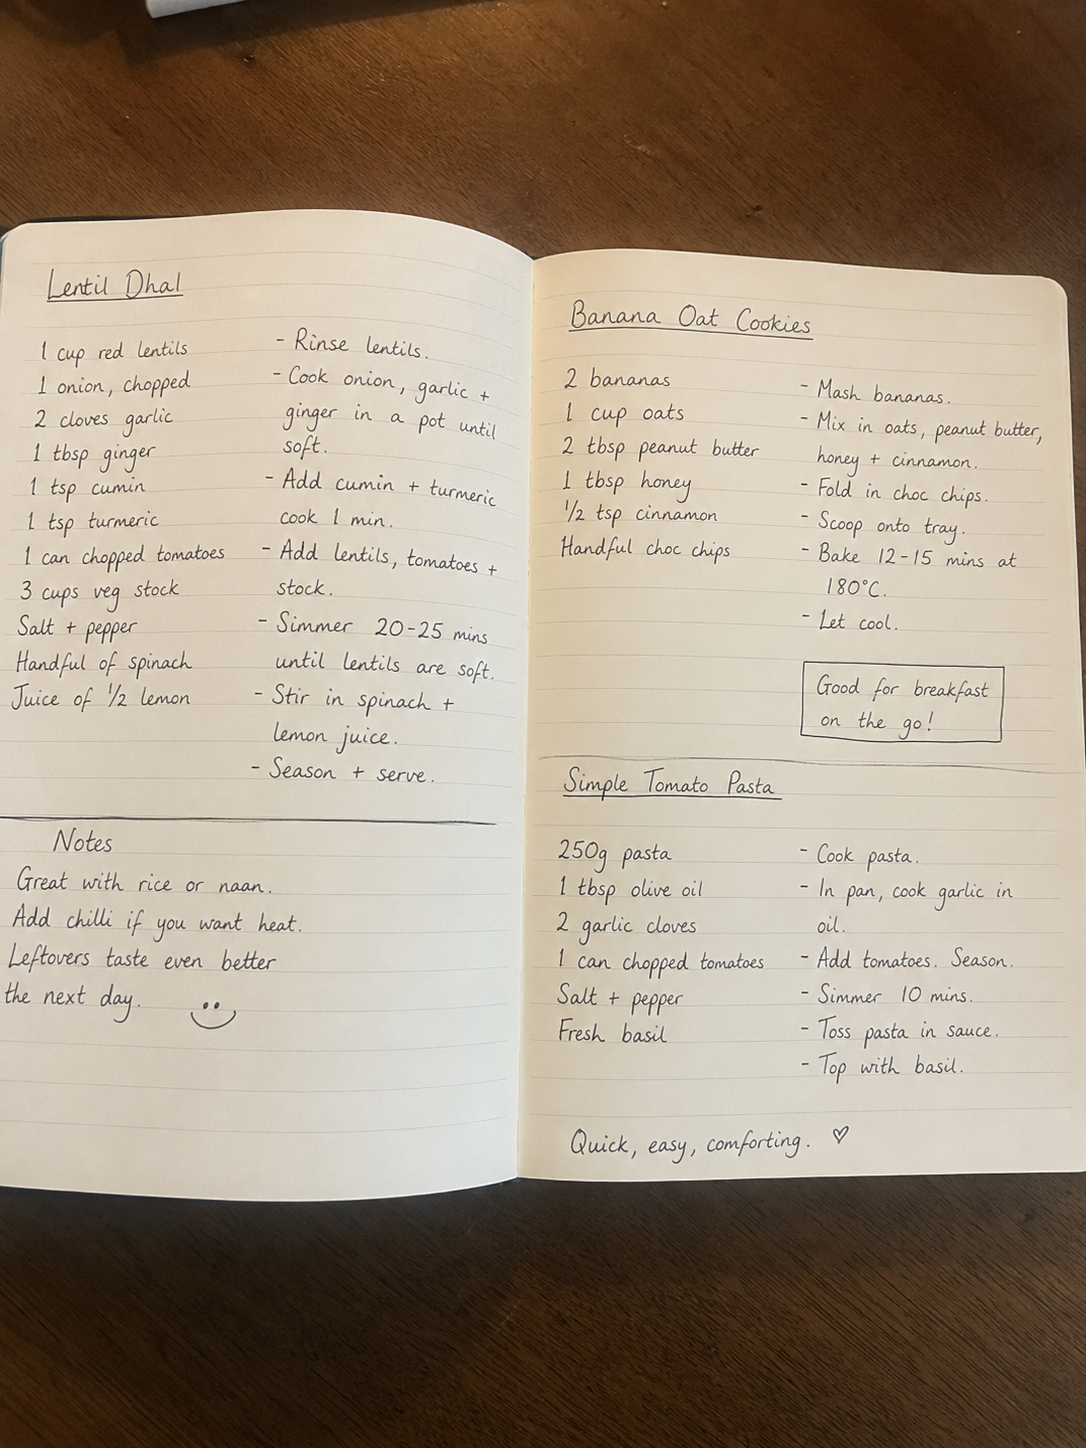 Lentil Dhal
1 cup red lentils
1 onion, chopped
2 cloves garlic
1 tbsp ginger
1 tsp cumin
1 tsp turmeric
1 can chopped tomatoes
3 cups veg stock
Salt + pepper
Handful of spinach
Juice of 1/2 lemon
- Rinse lentils.
- Cook onion, garlic +
ginger in a pot until
soft.
- Add cumin + turmeric
cook 1 min.
- Add lentils, tomatoes +
stock.
- Simmer 20-25 mins
until lentils are soft.
- Stir in spinach +
lemon juice.
- Season + serve.
Notes
Great with rice or naan.
Add chilli if you want heat.
Leftovers taste even better
the next day.
Banana Oat Cookies
2 bananas
1 cup oats
2 tbsp peanut butter
1 tbsp honey
1/2 tsp cinnamon
Handful choc chips
- Mash bananas.
- Mix in oats, peanut butter,
honey + cinnamon.
- Fold in choc chips.
- Scoop onto tray.
- Bake 12-15 mins at
180°C.
- Let cool.
Good for breakfast
on the go!
Simple Tomato Pasta
250g pasta
1 tbsp olive oil
2 garlic cloves
1 can chopped tomatoes
Salt + pepper
Fresh basil
- Cook pasta.
- In pan, cook garlic in
oil.
- Add tomatoes. Season.
- Simmer 10 mins.
- Toss pasta in sauce.
- Top with basil.
Quick, easy, comforting. ♡